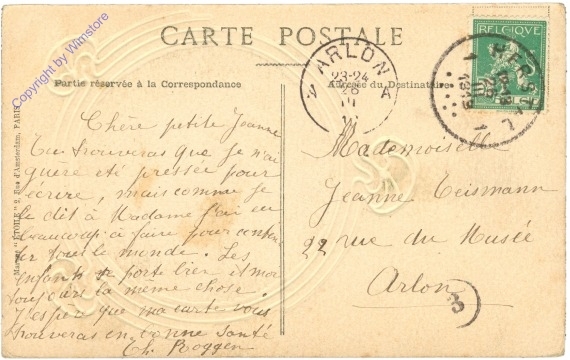 CARTE POSTALE
BELGIQUE
Copyright by Wimstore
Partie réservée à la Correspondance
Adresse du Destinataire
ARLON
23-24
A
Chère petite Jeanne
tu trouveras que je n'ai
guère été pressée pour
écrire, mais comme je
le dit à Madame j'ai eu
beaucoup à faire pour conten
ter tout le monde. Les
enfants se porte bien et moi
toujours la même chose
J'espère que ma carte vous
trouveras en bonne santé
Th. Roggen
Mademoiselle
Jeanne Teismann
22 rue du Musée
Arlon
Marque "ÉTOILE" 2, Rue d'Amsterdam, PARIS